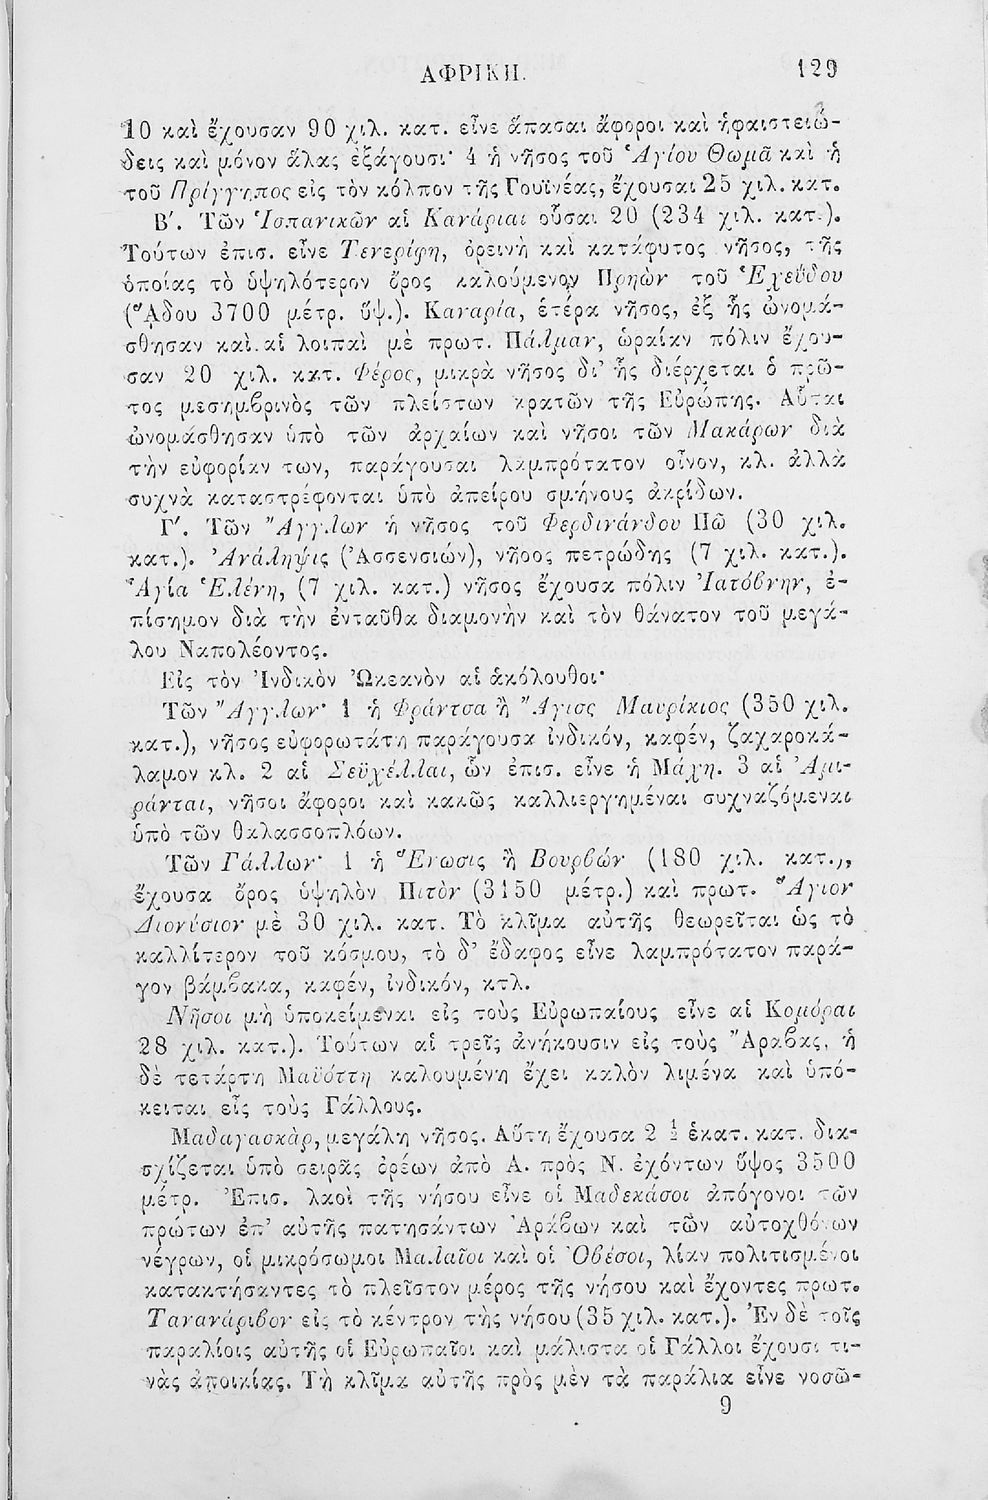 ΑΦΡΙΚΗ. 129
10 καὶ ἔχουσαν 90 χιλ. κατ. εἶνε ἅπασαι ἄφοροι καὶ ἡφαιστειώ-
δεις καὶ μόνον ἅλας ἐξάγουσι· 4 ἡ νῆσος τοῦ Ἁγίου Θωμᾶ καὶ ἡ
τοῦ Πρίγγηπος εἰς τὸν κόλπον τῆς Γουϊνέας, ἔχουσαι 25 χιλ. κατ.
Β΄. Τῶν Ἱσπανικῶν αἱ Κανάριαι οὖσαι 20 (234 χιλ. κατ.).
Τούτων ἐπισ. εἶνε Τενερίφη, ὀρεινὴ καὶ κατάφυτος νῆσος, τῆς
ὁποίας τὸ ὑψηλότερον ὄρος καλούμενον Πρηὼν τοῦ Ἐχεΰδου
(ᾍδου 3700 μέτρ. ὕψ.). Καναρία, ἑτέρα νῆσος, ἐξ ἧς ὠνομά-
σθησαν καὶ αἱ λοιπαὶ μὲ πρωτ. Πάλμαν, ὡραίαν πόλιν ἔχου-
σαν 20 χιλ. κατ. Φέρος, μικρὰ νῆσος δι’ ἧς διέρχεται ὁ πρῶ-
τος μεσημβρινὸς τῶν πλείστων κρατῶν τῆς Εὐρώπης. Αὗται
ὠνομάσθησαν ὑπὸ τῶν ἀρχαίων καὶ νῆσοι τῶν Μακάρων διὰ
τὴν εὐφορίαν των, παράγουσαι λαμπρότατον οἶνον, κλ. ἀλλὰ
συχνὰ καταστρέφονται ὑπὸ ἀπείρου σμήνους ἀκρίδων.
Γ΄. Τῶν Ἄγγλων ἡ νῆσος τοῦ Φερδινάνδου Πῶ (30 χιλ.
κατ.). Ἀνάληψις (Ἀσσενσιών), νῆσος πετρώδης (7 χιλ. κατ.).
Ἁγία Ἑλένη, (7 χιλ. κατ.) νῆσος ἔχουσα πόλιν Ἰατόβνην, ἐ-
πίσημον διὰ τὴν ἐνταῦθα διαμονὴν καὶ τὸν θάνατον τοῦ μεγά-
λου Ναπολέοντος.
Εἰς τὸν Ἰνδικὸν Ὠκεανὸν αἱ ἀκόλουθοι·
Τῶν Ἄγγλων· 1 ἡ Φράντσα ἢ Ἅγιος Μαυρίκιος (350 χιλ.
κατ.), νῆσος εὐφορωτάτη παράγουσα ἰνδικόν, καφέν, ζαχαροκά-
λαμον κλ. 2 αἱ Σεϋχέλλαι, ὧν ἐπισ. εἶνε ἡ Μάχη. 3 αἱ Ἀμι-
ράνται, νῆσοι ἄφοροι καὶ κακῶς καλλιεργημέναι συχναζόμεναι
ὑπὸ τῶν θαλασσοπλόων.
Τῶν Γάλλων· 1 ἡ Ἕνωσις ἢ Βουρβών (180 χιλ. κατ.),
ἔχουσα ὄρος ὑψηλὸν Πιτὸν (3150 μέτρ.) καὶ πρωτ. Ἅγιον
Διονύσιον μὲ 30 χιλ. κατ. Τὸ κλῖμα αὐτῆς θεωρεῖται ὡς τὸ
καλλίτερον τοῦ κόσμου, τὸ δ’ ἔδαφος εἶνε λαμπρότατον παρά-
γον βάμβακα, καφέν, ἰνδικόν, κτλ.
Νῆσοι μὴ ὑποκείμεναι εἰς τοὺς Εὐρωπαίους εἶνε αἱ Κομόραι
28 χιλ. κατ.). Τούτων αἱ τρεῖς ἀνήκουσιν εἰς τοὺς Ἄραβας, ἡ
δὲ τετάρτη Μαϋόττη καλουμένη ἔχει καλὸν λιμένα καὶ ὑπό-
κειται εἰς τοὺς Γάλλους.
Μαδαγασκὰρ, μεγάλη νῆσος. Αὕτη ἔχουσα 2 ½ ἑκατ. κατ. δια-
σχίζεται ὑπὸ σειρᾶς ὀρέων ἀπὸ Α. πρὸς Ν. ἐχόντων ὕψος 3500
μέτρ. Ἐπισ. λαοὶ τῆς νήσου εἶνε οἱ Μαδεκάσοι ἀπόγονοι τῶν
πρώτων ἐπ’ αὐτῆς πατησάντων Ἀράβων καὶ τῶν αὐτοχθόνων
νέγρων, οἱ μικρόσωμοι Μαλαῖοι καὶ οἱ Ὀβέσοι, λίαν πολιτισμένοι
κατακτήσαντες τὸ πλεῖστον μέρος τῆς νήσου καὶ ἔχοντες πρωτ.
Τανανάριβον εἰς τὸ κέντρον τῆς νήσου (35 χιλ. κατ.). Ἐν δὲ τοῖς
παραλίοις αὐτῆς οἱ Εὐρωπαῖοι καὶ μάλιστα οἱ Γάλλοι ἔχουσι τι-
νὰς ἀποικίας. Τὴ κλῖμα αὐτῆς πρὸς μὲν τὰ παράλια εἶνε νοσῶ-
9